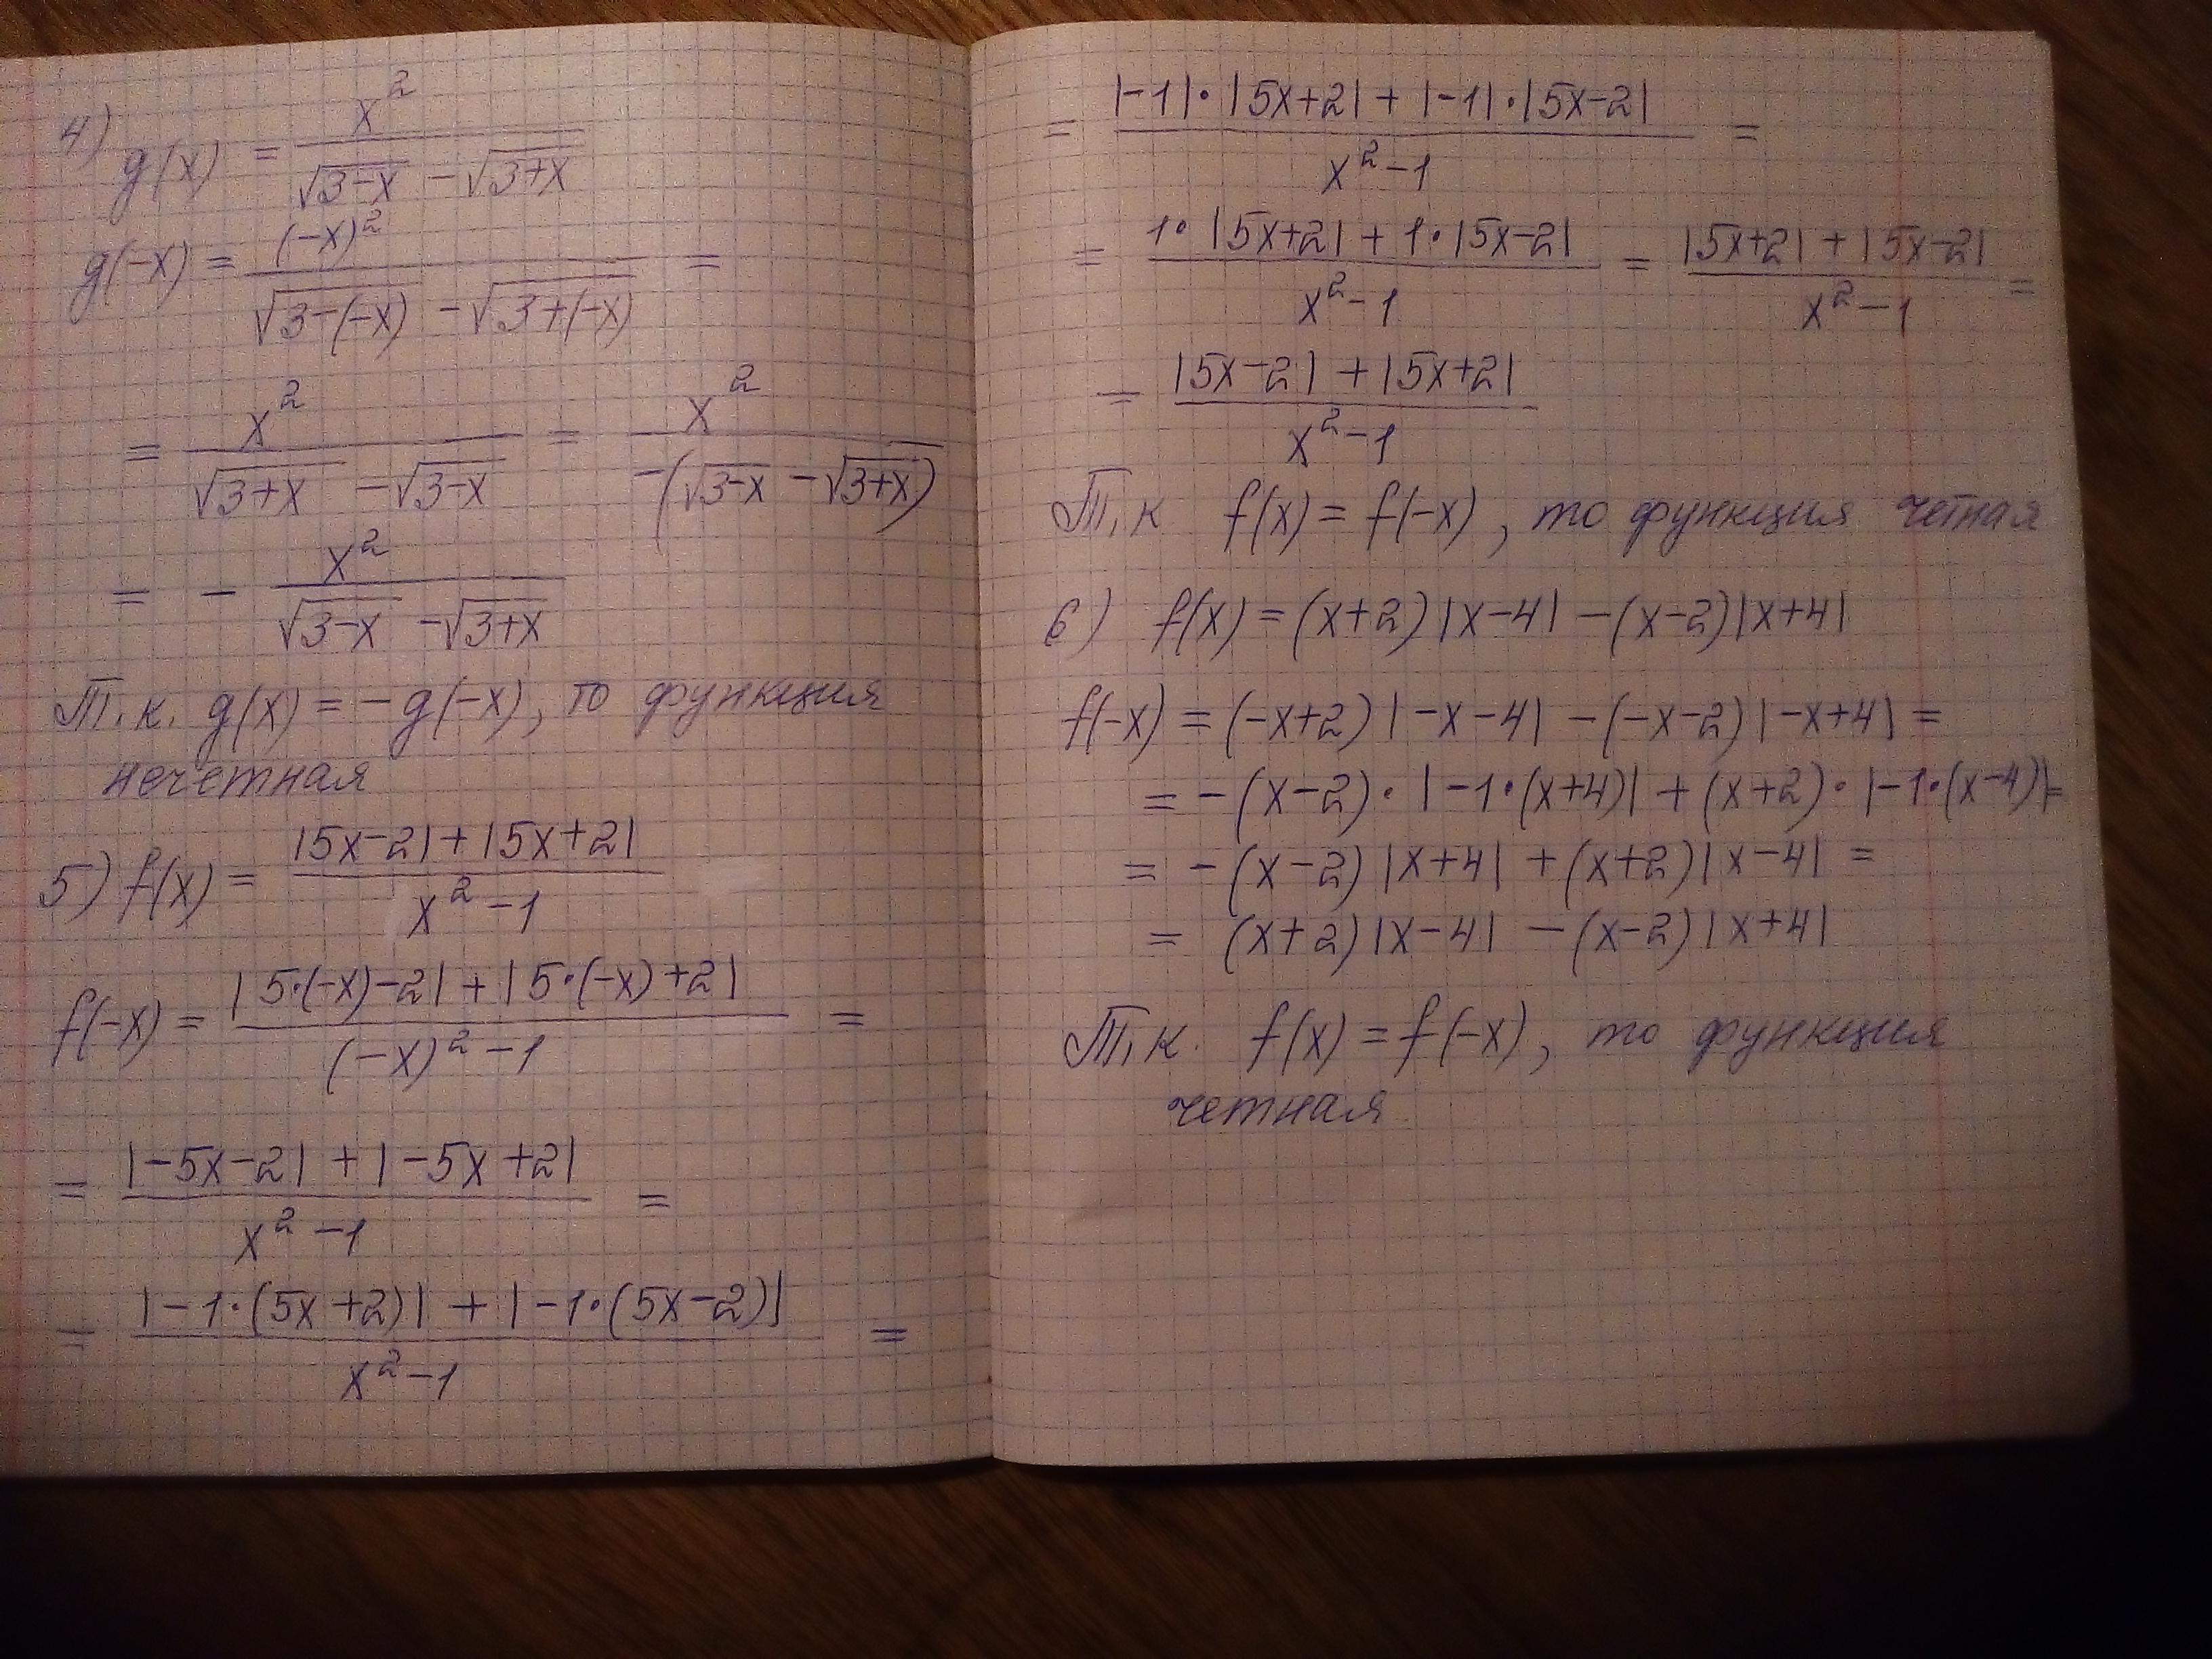 4) g(x) = x² / (√(3-x) - √(3+x))
g(-x) = (-x)² / (√(3-(-x)) - √(3+(-x))) =
= x² / (√(3+x) - √(3-x)) = x² / (-(√(3-x) - √(3+x)))
= - x² / (√(3-x) - √(3+x))
Т.к. g(x) = -g(-x), то функция
нечетная
5) f(x) = (|5x-2| + |5x+2|) / (x²-1)
f(-x) = (|5·(-x)-2| + |5·(-x)+2|) / ((-x)²-1) =
= (|-5x-2| + |-5x+2|) / (x²-1) =
= (|-1·(5x+2)| + |-1·(5x-2)|) / (x²-1) =
= (|-1|·|5x+2| + |-1|·|5x-2|) / (x²-1) =
= (1·|5x+2| + 1·|5x-2|) / (x²-1) = (|5x+2| + |5x-2|) / (x²-1) =
= (|5x-2| + |5x+2|) / (x²-1)
Т.к f(x) = f(-x), то функция четная
6) f(x) = (x+2)|x-4| - (x-2)|x+4|
f(-x) = (-x+2)|-x-4| - (-x-2)|-x+4| =
= -(x-2)·|-1·(x+4)| + (x+2)·|-1·(x-4)| =
= -(x-2)|x+4| + (x+2)|x-4| =
= (x+2)|x-4| - (x-2)|x+4|
Т.к. f(x) = f(-x), то функция
четная